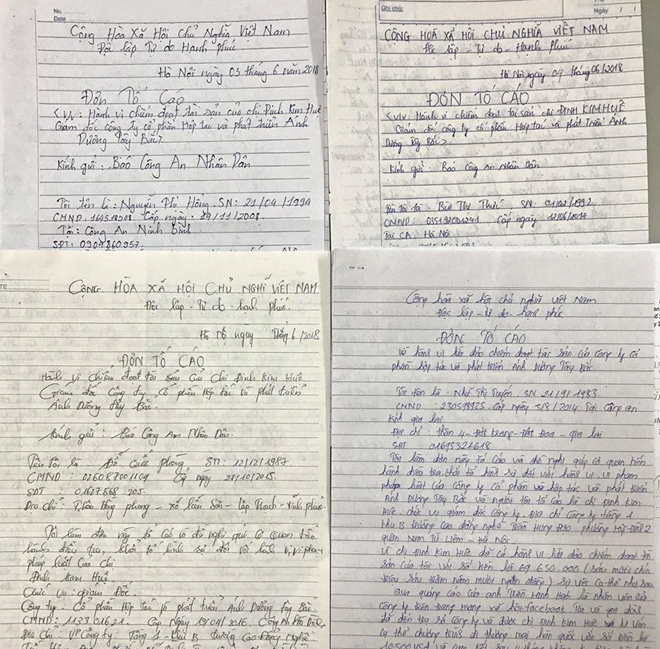 No.
Date
Cộng Hòa Xã Hội Chủ Nghĩa Việt Nam
Độc lập Tự do Hạnh Phúc
Hà Nội ngày 03 tháng 6 năm 2018
Đơn Tố Cáo
< V/v : Hành vi chiếm đoạt tài sản của chị Đinh Kim Huê
Giám đốc công ty cổ phần Hợp tác và phát triển Ánh
Dương Tây Bắc >
Kính gửi : Báo Công An Nhân Dân
Tôi tên là : Nguyễn Phi Hùng. SN : 21/04/1994
CMND : Cấp ngày : 29/11/2008.
Tại : Công An Ninh Bình
SĐT : 0904860957
Ghi chú:
Ngày / /
CỘNG HOÀ XÃ HỘI CHỦ NGHĨA VIỆT NAM
Độc lập - Tự do - Hạnh Phúc
Hà Nội ngày 04 tháng 06/2018
ĐƠN TỐ CÁO
< V/v : Hành vi chiếm đoạt tài sản chị ĐINH KIM HUÊ
Giám đốc công ty cổ phần Hợp tác và phát Triển Ánh
Dương Tây Bắc >
Kính gửi : Báo Công An Nhân Dân
Tên tôi là : Bùi Thị Thuý . SN : 01/02/1992
CMND : Cấp ngày
Tại CA . Hà Nội
CỘNG HÒA XÃ HỘI CHỦ NGHĨ VIỆT NAM
Độc lập - Tự do - hạnh phúc
Hà Nội ngày tháng 6/2018
ĐƠN TỐ CÁO
Hành vi chiếm đoạt tài sản của chị Đinh Kim Huê
Giám đốc Công ty Cổ phần Hợp tác và Phát triển
Ánh Dương Tây Bắc.
Kính gửi : Báo Công An Nhân Dân
Tên Tôi là Đỗ Quốc phòng SN : 12/12/1987
CMND : 026087001109 Cấp ngày 28/10/2015.
SĐT : 205
Địa chỉ : phong - xã - Lập Thạch - Vĩnh Phúc
Tôi làm đơn này tố cáo và đề nghị quý cơ quan tiến
hành điều tra, khởi tố hình sự đối với hành vi, vi phạm
pháp luật của chị
Đinh Kim Huê
Chức vụ : Giám Đốc.
Công ty : Cổ phần Hợp tác và phát triển Ánh Dương Tây Bắc
CMND : 113301621 Cấp Ngày 2016. Công An
Địa chỉ : VP Công ty : Tầng 1 - Khu B trường Cao Đẳng Nghề
Cộng hòa xã hội chủ nghĩa Việt Nam
Độc lập - Tự do - hạnh phúc
ĐƠN TỐ CÁO
Về hành vi lừa đảo chiếm đoạt tài sản của Công ty cổ
phần hợp tác và phát triển Ánh Dương Tây Bắc
Tôi tên là : Thị Tuyến . SN 1983
CMND : 230598925 Cấp ngày 5/8/2014 Tại Công an
tỉnh gia lai
Địa chỉ : thôn 4 - - - gia lai
SĐT : 01693321618
Tôi làm đơn này tố cáo và đề nghị quý cơ quan tiến
hành điều tra, khởi tố hình sự đối với hành vi, vi phạm
pháp luật của Công ty cổ phần và hợp tác và phát triển
Ánh Dương Tây Bắc và người tôi tố cáo là chị Đinh Kim
Huê. chức vụ giám đốc công ty. Địa chỉ Công ty tầng 1
khu B trường cao đẳng nghề Trần Hưng Đạo phường Mỹ Đình 2
quận Nam Từ Liêm - Hà Nội
Vì chị Đinh Kim Huê đã có hành vi lừa đảo chiếm đoạt tài
sản của tôi với số tiền là 69 650 000 ( sáu mươi chín
triệu sáu trăm năm mươi ngàn đồng ) sự việc cụ thể như sau
Qua quảng cáo của anh Trần Hạnh là nhân viên của
Công ty trên trang mạng xã hội facebook tôi và gia đình
đã đến trụ sở công ty và được chị Đinh Kim Huê tư vấn
cụ thể chương trình đi thương mại hàn quốc với số tiền là
10500 USD